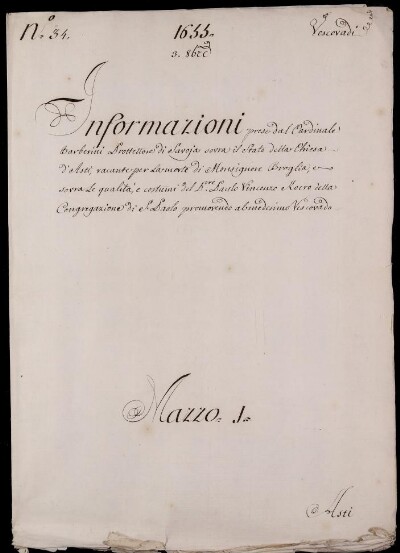 N.º 34.
1655.
3. 8bre
Vescovadi
Informazioni prese dal Cardinale
Barberini Prottettore di Savoja sovra il Stato della Chiesa
d'Asti, vacante per la morte di Monsignore Broglia; e
sovra le qualità, e costumi del P.re Paulo Vincenzo Roero della
Congregazione di S. Paolo promovendo al medesimo Vescovado.
Mazzo. 1.
Asti